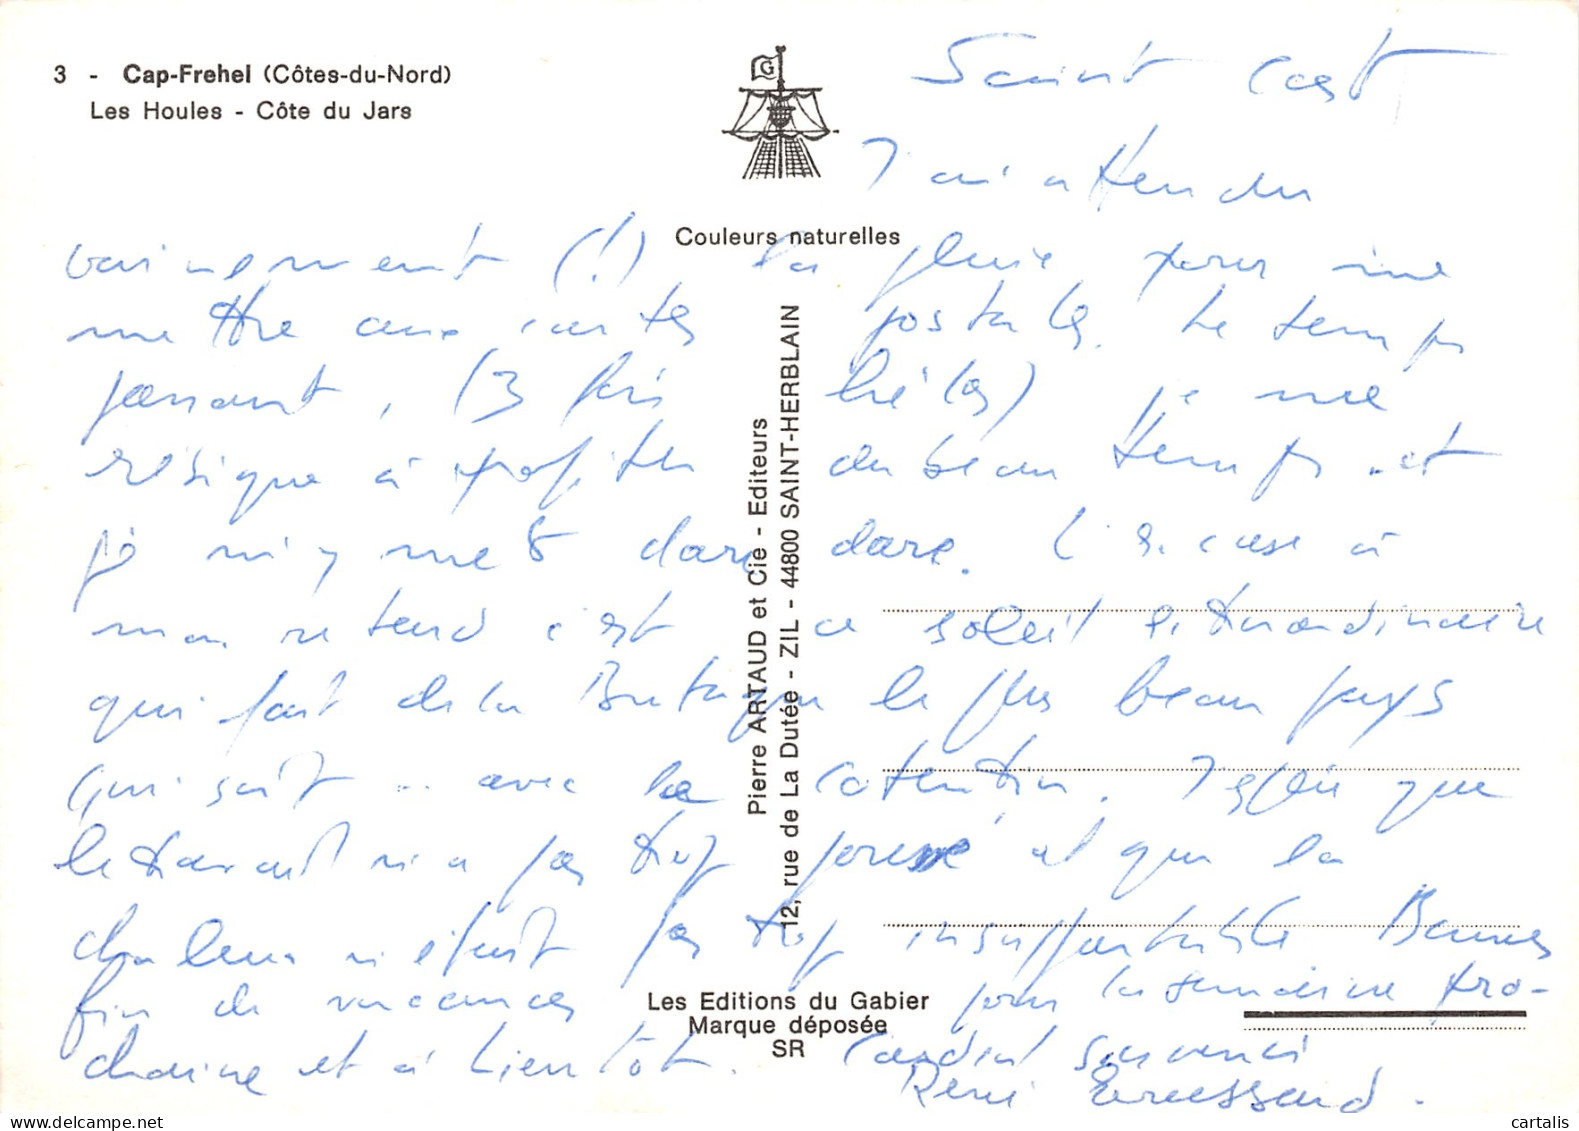 3 - Cap-Frehel (Côtes-du-Nord)
Les Houles - Côte du Jars
G
Couleurs naturelles
Pierre ARTAUD et Cie - Editeurs
12, rue de La Dutée - ZIL - 44800 SAINT-HERBLAIN
Les Editions du Gabier
Marque déposée
SR
Saint Cast
J'ai attendu
vainement (!) la pluie pour me
mettre aux cartes postales. Le temps
passant, (3 fois hélas) je me
résigne à profiter du beau temps et
je m'y mets dare dare. L'excuse à
mon retard c'est ce soleil extraordinaire
qui fait de la Bretagne le plus beau pays
qui soit .. avec le Cotentin. J'espère que
le travail n'a pas trop pressé et que la
chaleur n'était pas trop insupportable Bonnes
fin de vacances pour la semaine pro-
chaine et à bientôt. Cordial souvenir
René
cartalis